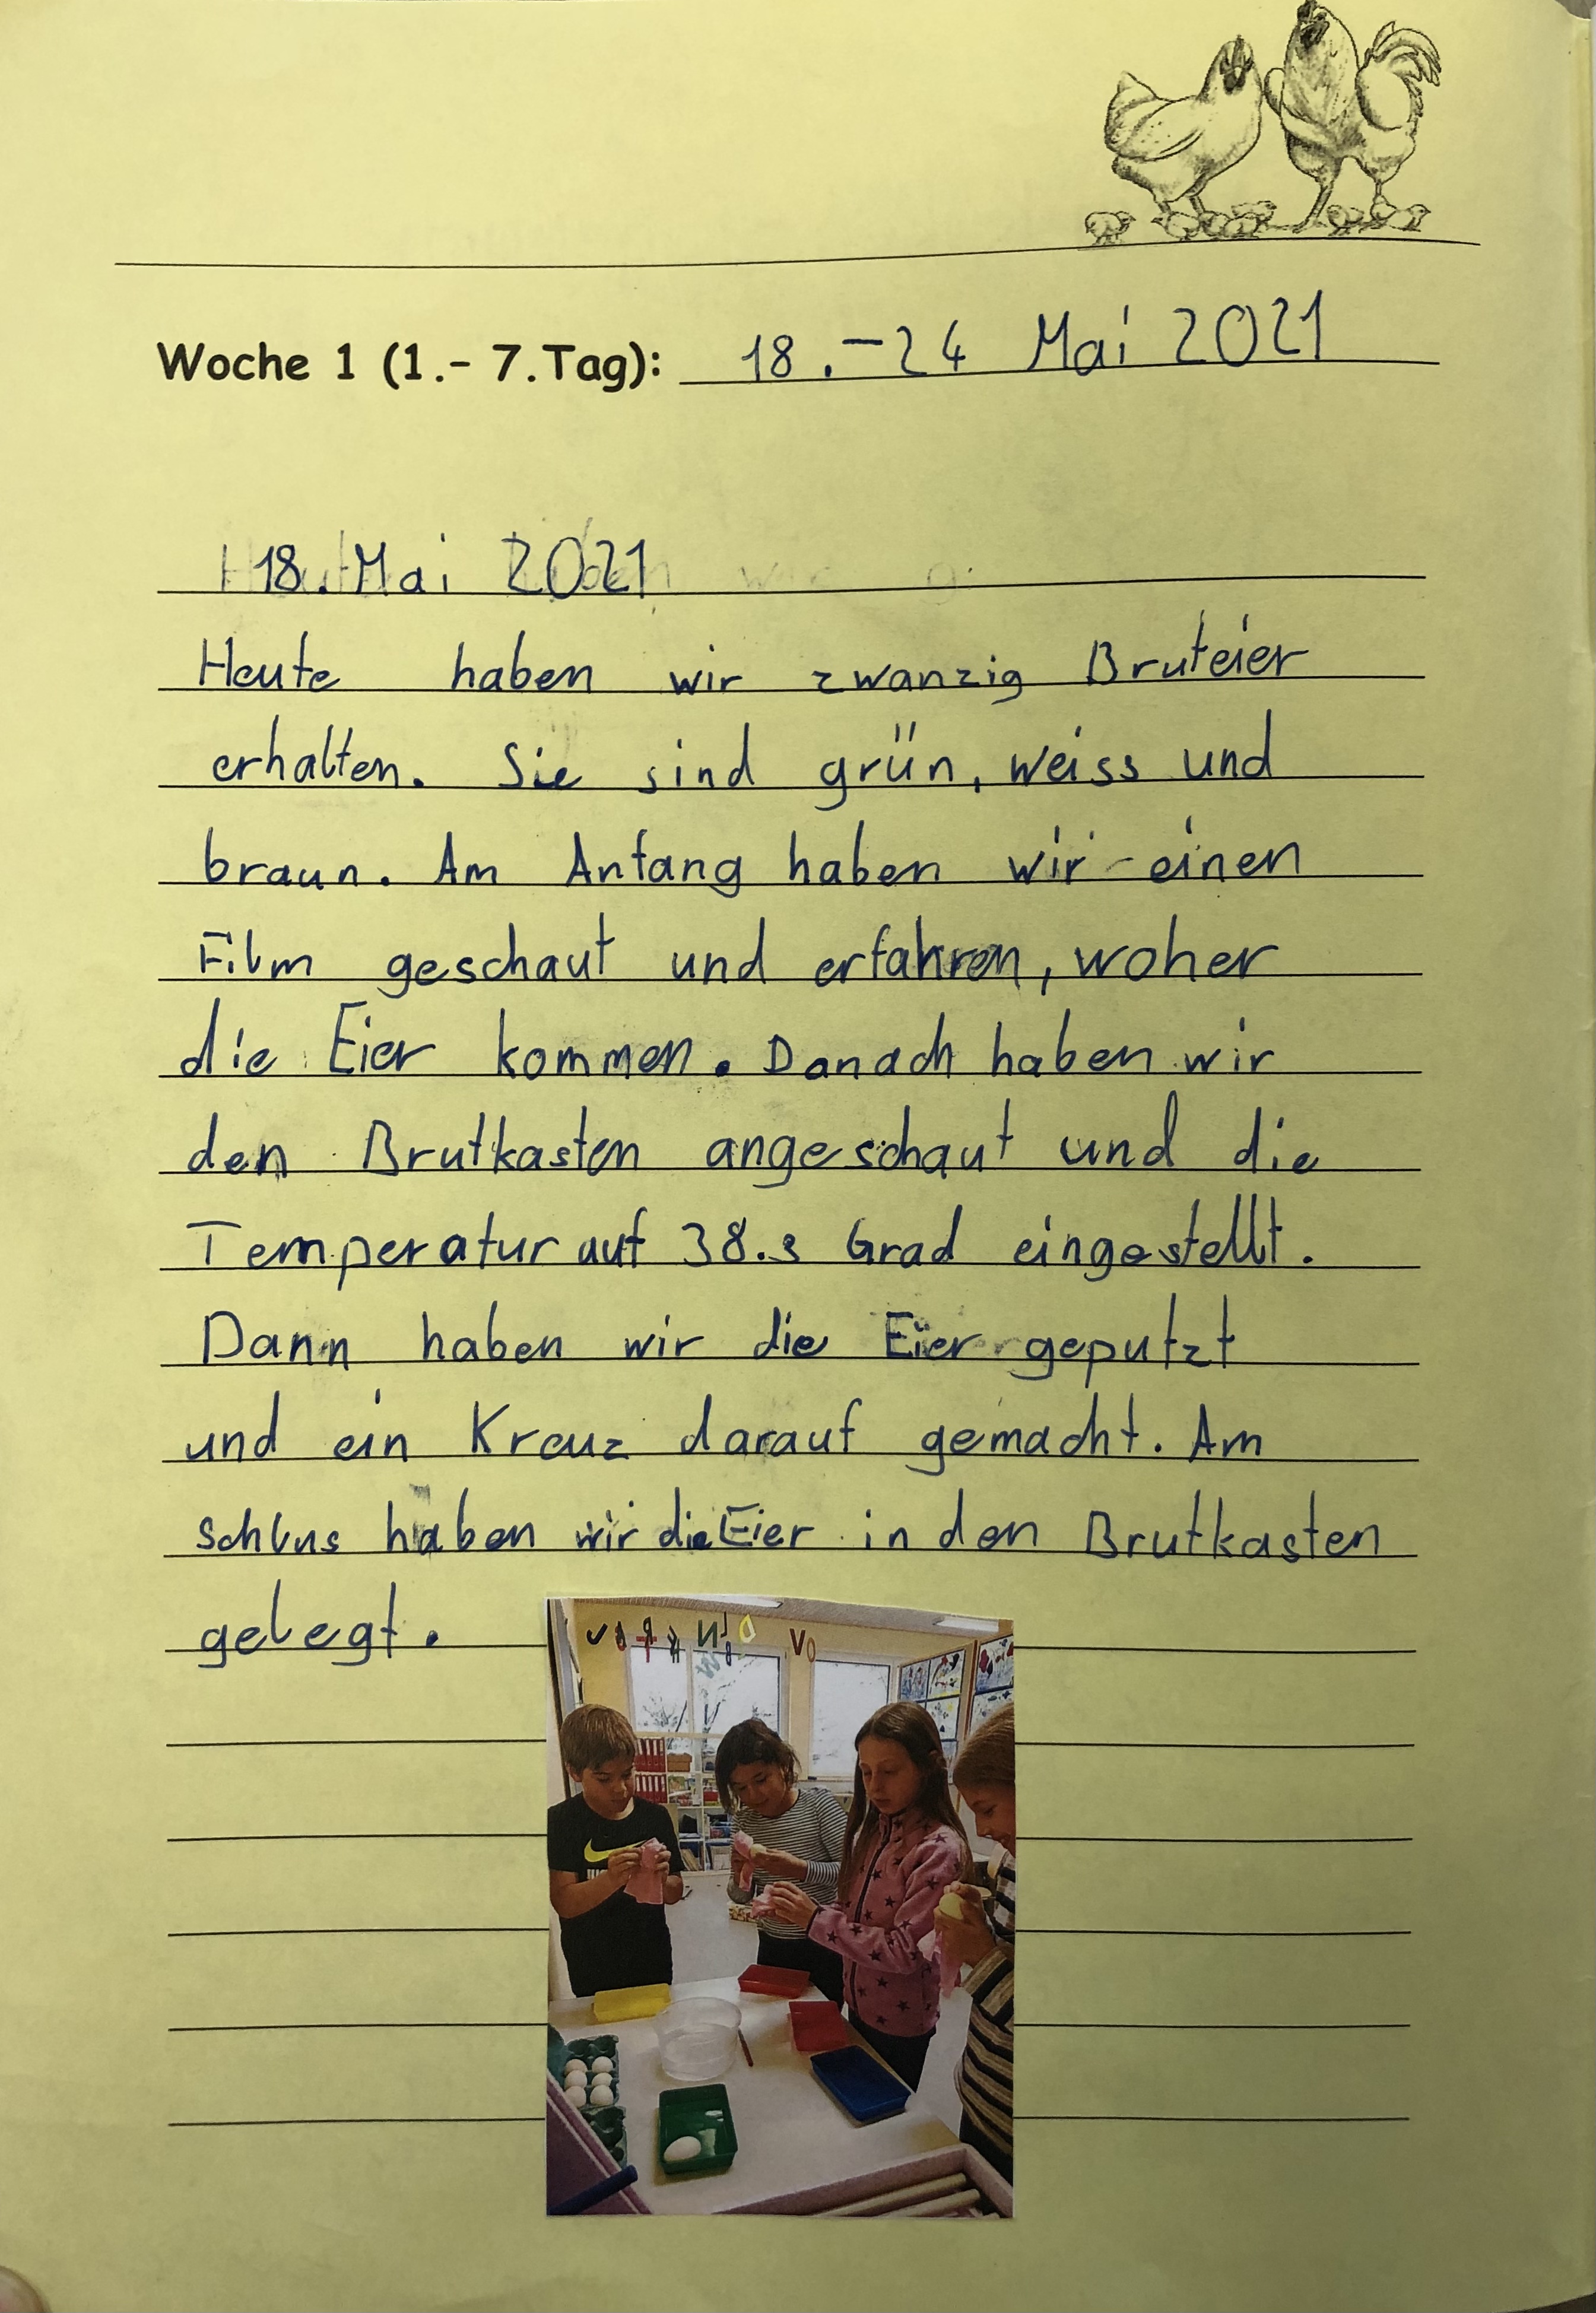 Woche 1 (1.- 7.Tag): 18.-24 Mai 2021
18. Mai 2021
Heute haben wir zwanzig Bruteier
erhalten. Sie sind grün, weiss und
braun. Am Anfang haben wir einen
Film geschaut und erfahren, woher
die Eier kommen. Danach haben wir
den Brutkasten angeschaut und die
Temperatur auf 38.3 Grad eingestellt.
Dann haben wir die Eier geputzt
und ein Kreuz darauf gemacht. Am
Schlus haben wir die Eier in den Brutkasten
gelegt.